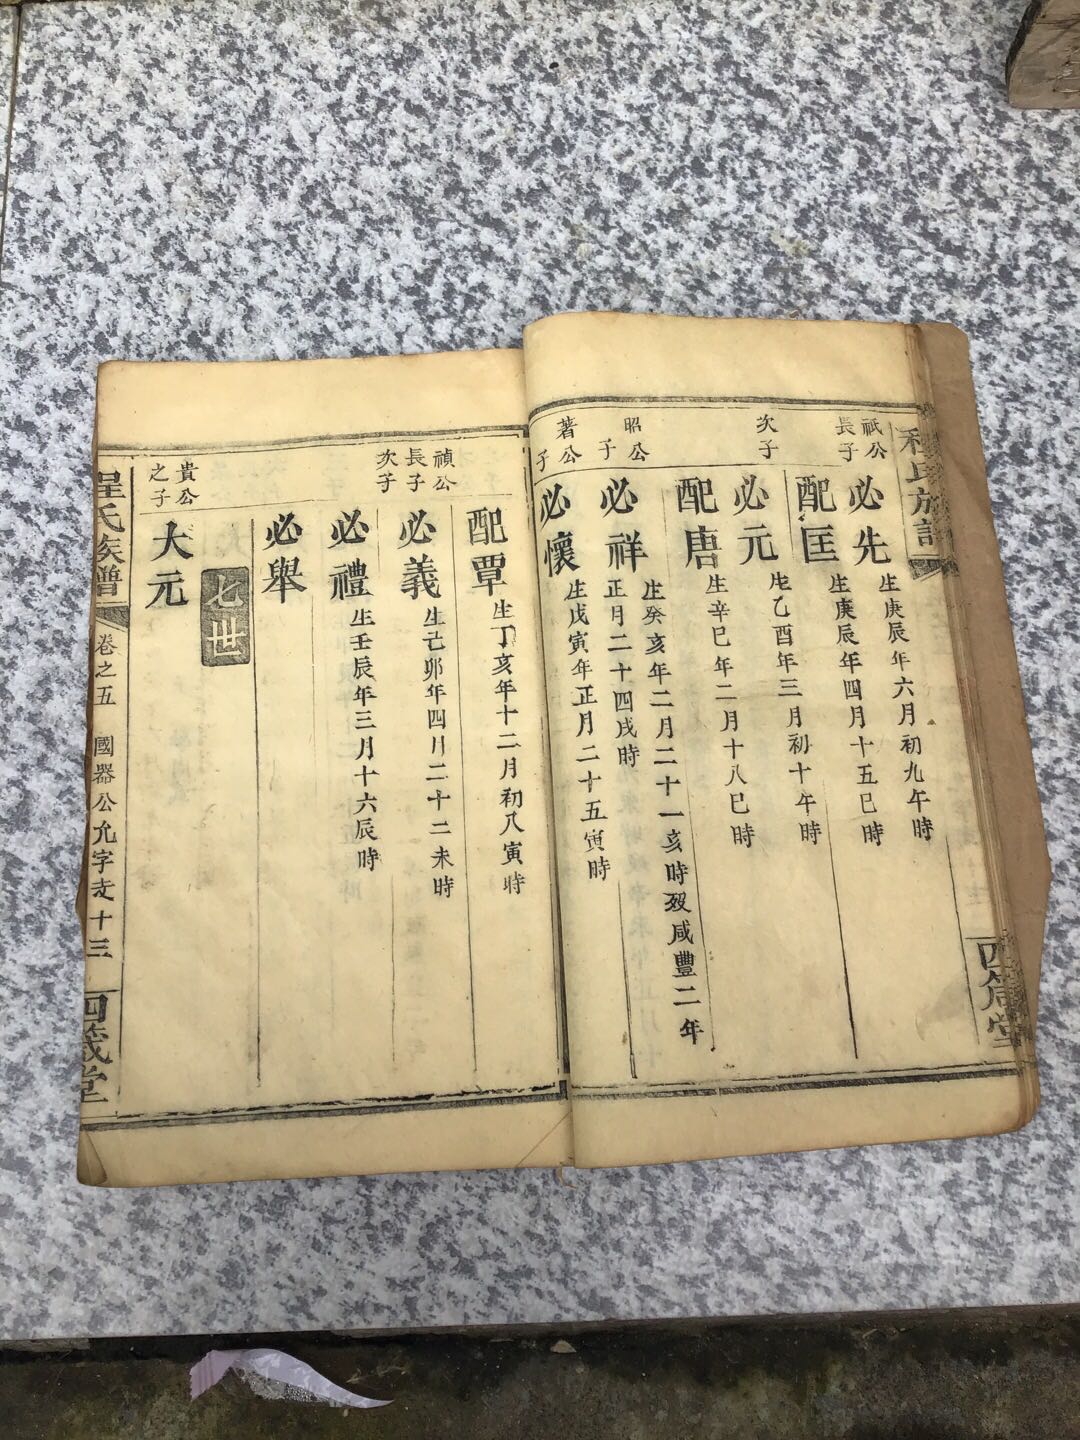 程氏族譜 四箴堂
祇公
長子
必先 生庚辰年六月初九午時
配匡 生庚辰年四月十五巳時
次子
必元 生乙酉年三月初十午時
配唐 生辛巳年二月十八巳時
昭公
子
必祥 生癸亥年二月二十一亥時歿咸豐二年
正月二十四戌時
著公
子
必懷 生戊寅年正月二十五寅時
配覃 生丁亥年十二月初八寅時
禎公
長子
必義 生己卯年四月二十二未時
次子
必禮 生壬辰年三月十六辰時
必舉
七世
貴公
之子
大元
程氏族譜 卷之五 國器公允字支十三 四箴堂